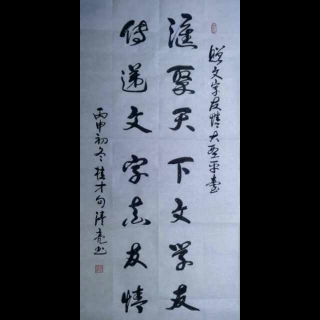 赠文字友情大西平台
汇聚天下文学友
传递文字真友情
丙申初冬桂才句许亮书